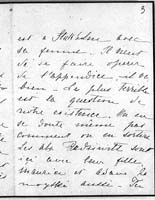 3
est à Stockholm avec
sa femme. Il vient
de se faire opérer
de l'appendice - il va
bien - La plus terrible
est la question de
notre existence. On ne
se doute même pas
comment on en sortira
Les
ici avec leur fille,
Maurice et dans les
aussi -